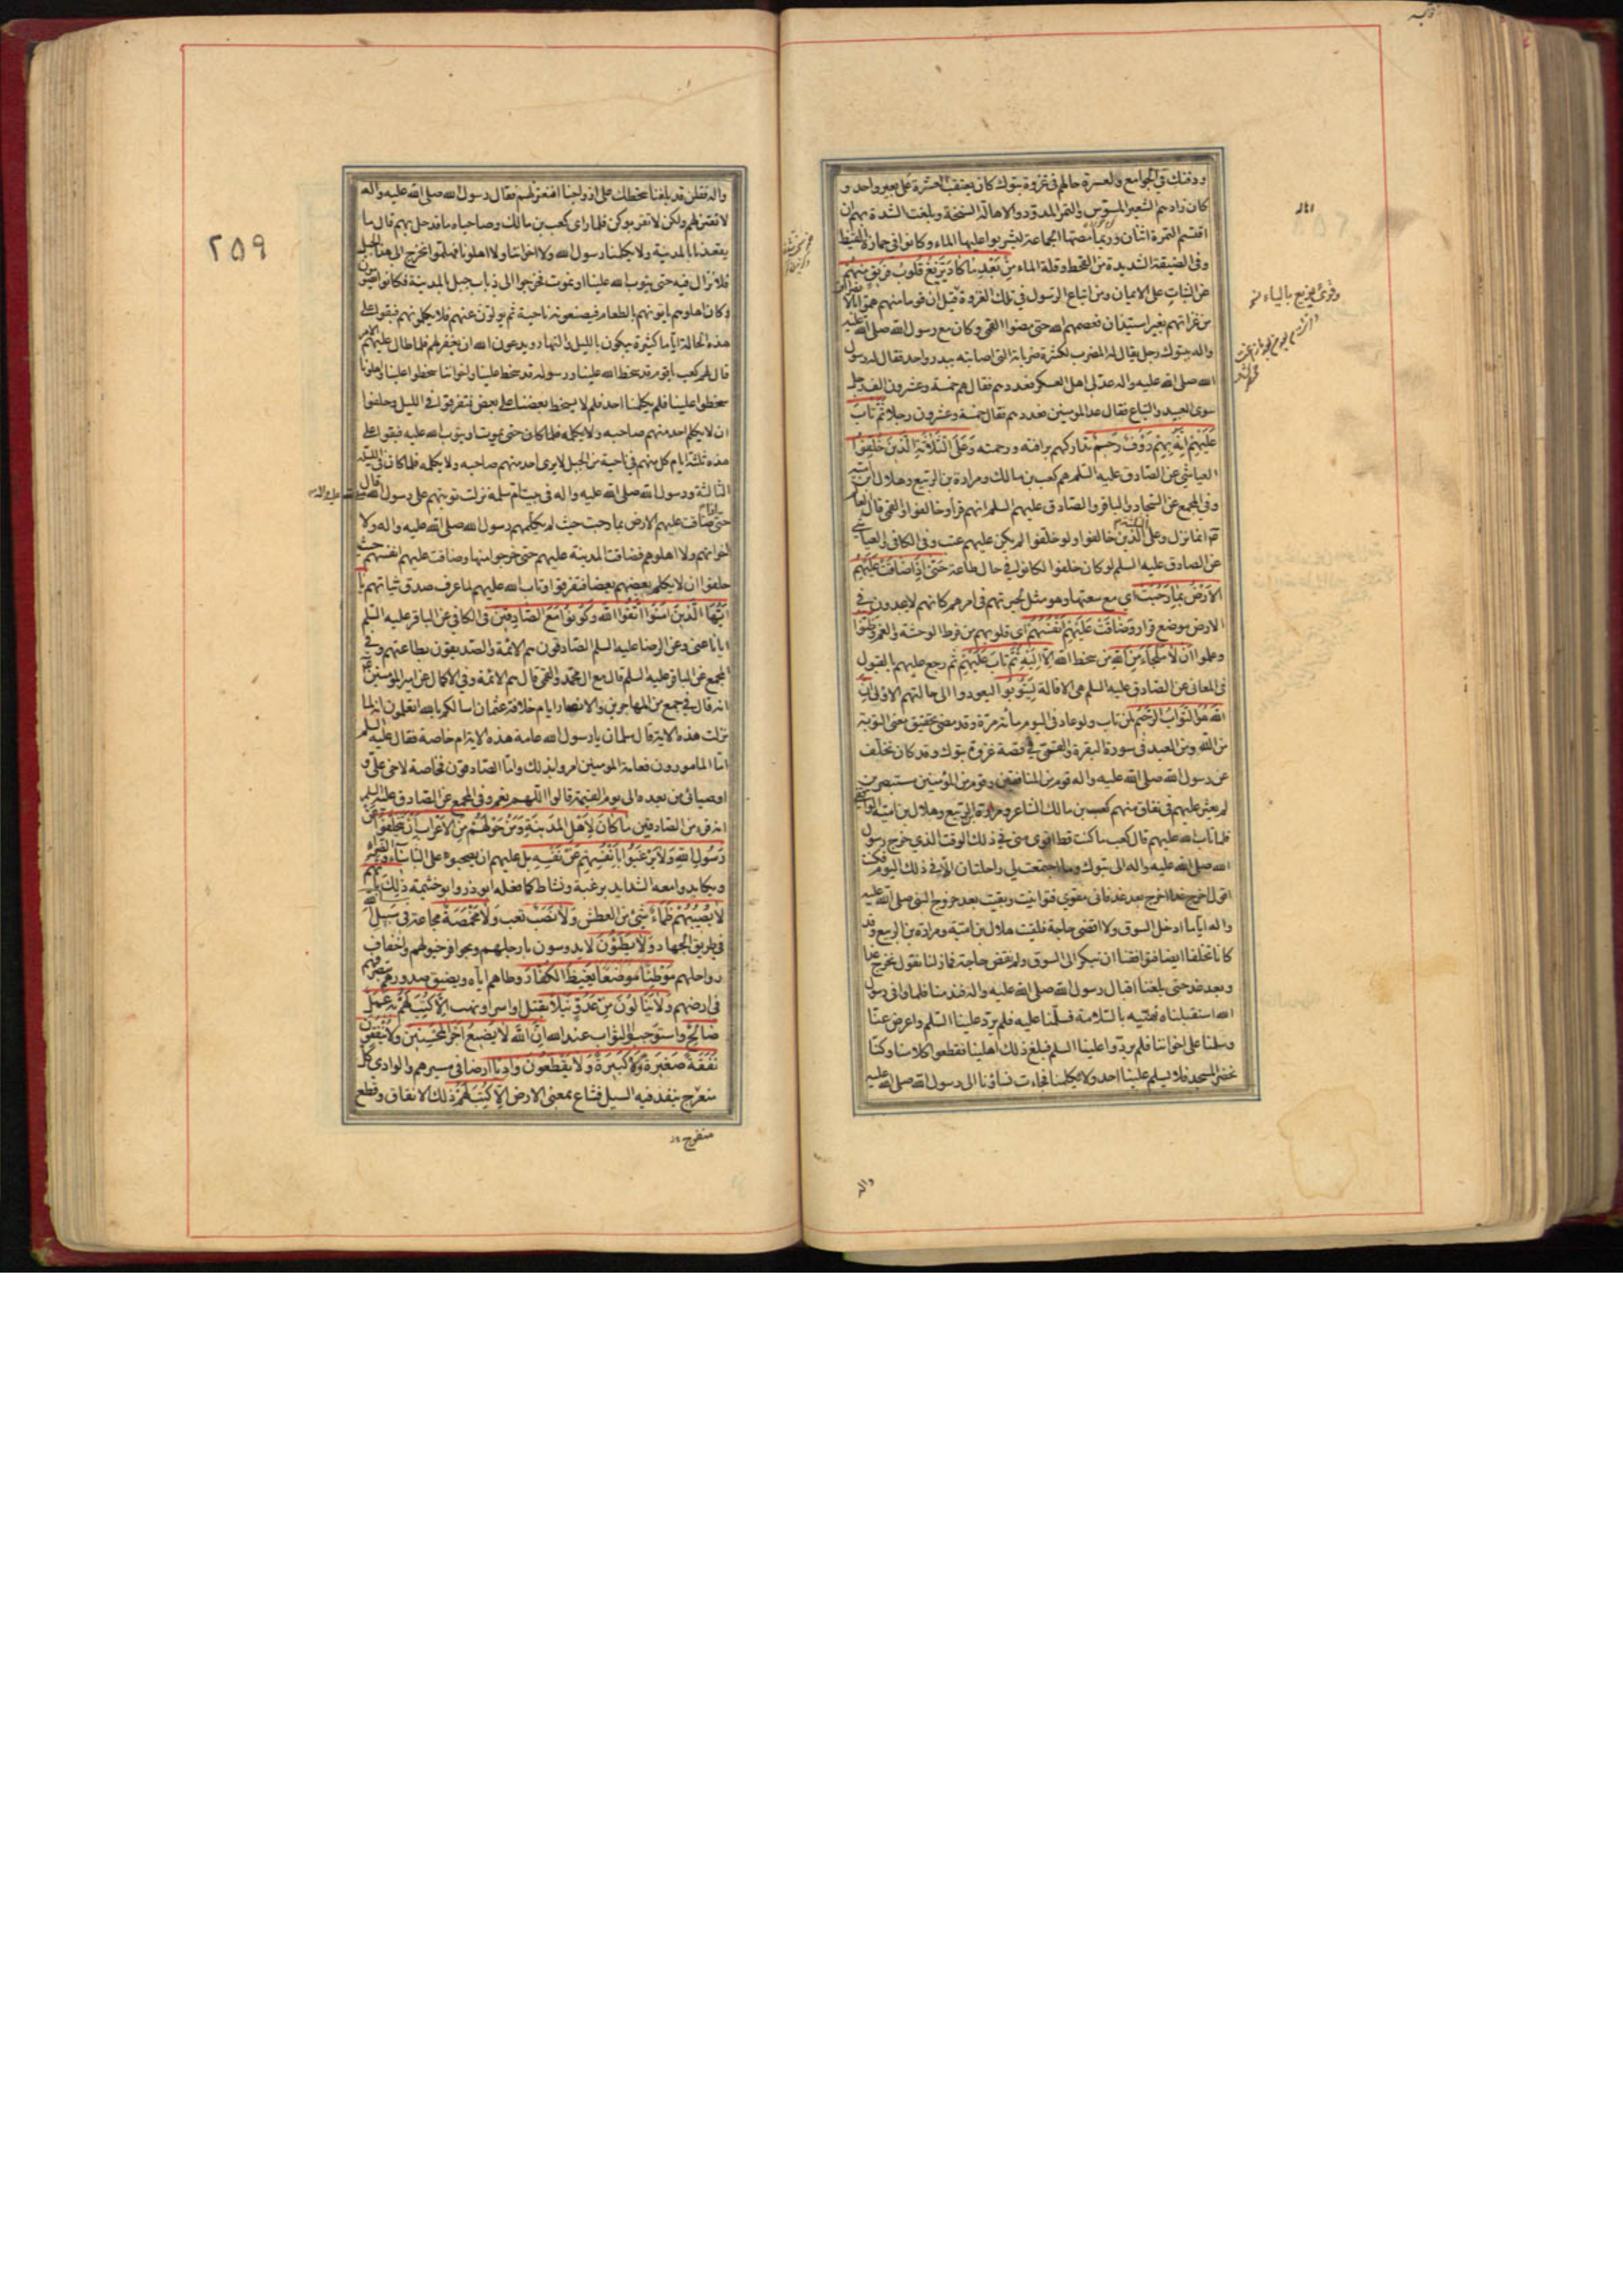 ودفنك في الجوامع والعسرة حالهم في غزوة تبوك كان يعتقب العشرة على بعير واحد و
كان زادهم الشعير المسوس والتمر المدود والاهالة السنخة وبلغت الشدة بهم ان
اقتسم التمرة اثنان وربما مصها الجماعة ليشربوا عليها الماء وكانوا في حمارة القيظ
وفي الضيقة الشديدة من القحط وقلة الماء من بعد ما كاد يزيغ قلوب فريق منهم
عن الثبات على الايمان ومن اتباع الرسول في تلك الغزوة قيل ان قوما منهم هموا بالانصراف
من غزاتهم بغير استيذان فعصمهم الله حتى مضوا القمي وكان مع رسول الله صلى الله عليه
واله بتبوك رجل يقال له المضرب لكثرة ضرباته التي اصابته ببدر واحد فقال له رسول
الله صلى الله عليه واله عد لي اهل العسكر فعددهم فقال هم خمسة وعشرون الف رجل
سوى العبيد والتباع فقال عد المومنين فعددهم فقال خمسة وعشرون رجلا ثم تاب
عليهم انه بهم رؤف رحيم تداركهم برافته ورحمته وعلى الثلاثة الذين خلفوا
العياشي عن الصادق عليه السلم هم كعب بن مالك ومرارة بن الربيع وهلال بن امية
وفي المجمع عن السجاد والباقر والصادق عليهم السلم انهم قراوا خالفوا والقمي قال العالم
انما نزل وعلى الثلثة الذين خالفوا ولو خلفوا لم يكن عليهم عتب وفي الكافي والعياشي
عن الصادق عليه السلم لو كان خلفوا لكانوا في حال طاعة حتى اذا ضاقت عليهم
الارض بما رحبت اي مع سعتها وهو مثل لحيرتهم في امرهم كانهم لا يجدون في
الارض موضع قرار وضاقت عليهم انفسهم اي قلوبهم من فرط الوحشة والغم وظنوا
وعلموا ان لا ملجا من الله من سخط الله الا اليه ثم تاب عليهم ثم رجع عليهم بالقبول
في المعاني عن الصادق عليه السلم هي الاقالة ليتوبوا ليعودوا الى حالتهم الاولى ان
الله هو التواب الرحيم لمن تاب ولو عاد في اليوم مائة مرة وقد مضى تحقيق معنى التوبة
من الله ومن العبد في سورة البقرة والقمي في قصة غزوة تبوك وقد كان تخلف
عن رسول الله صلى الله عليه واله قوم من المنافقين وقوم من المؤمنين مستبصرين
لم يعثر عليهم في نفاق منهم كعب بن مالك الشاعر ومرارة بن الربيع وهلال بن امية الواقفي
فلما تاب الله عليهم قال كعب ما كنت قط اقوى مني في ذلك الوقت الذي خرج رسول
الله صلى الله عليه واله الى تبوك وما اجتمعت لي راحلتان الا في ذلك اليوم فكنت
اقول اخرج غدا اخرج بعد غد فاني مقوي فتوانيت وبقيت بعد خروج النبي صلى الله عليه
واله اياما ادخل السوق ولا اقضي حاجة فلقيت هلال بن امية ومرارة بن الربيع وقد
كانا تخلفا ايضا فتوافقنا ان نبكر الى السوق ولم نقض حاجة فما زلنا نقول نخرج غدا
وبعد غد حتى بلغنا اقبال رسول الله صلى الله عليه واله فندمنا فلما وافى رسول
الله استقبلناه نهنيه بالسلامة فسلمنا عليه فلم يرد علينا السلم واعرض عنا
وسلمنا على اخواننا فلم يردوا علينا السلم فبلغ ذلك اهلينا فقطعوا كلامنا وكنا
نحضر المسجد فلا يسلم علينا احد ولا يكلمنا فجاءت نساؤنا الى رسول الله صلى الله عليه
وقرئ يزيغ بالياء منه
واله
٢٥٩
واله فقلن قد بلغنا سخطك على ازواجنا افنعتزلهم فقال رسول الله صلى الله عليه واله
لا تعتزلنهم ولكن لا يقربوكن فلما راى كعب بن مالك وصاحباه ما قد حل بهم قال ما
يقعدنا بالمدينة ولا يكلمنا رسول الله ولا اخواننا ولا اهلونا فهلموا نخرج الى هذا الجبل
فلا نزال فيه حتى يتوب الله علينا او نموت فخرجوا الى ذباب جبل المدينة فكانوا يصومون
وكان اهلوهم ياتونهم بالطعام فيضعونه ناحية ثم يولون عنهم فلا يكلمونهم فبقوا على
هذه الحالة اياما كثيرة يبكون بالليل والنهار ويدعون الله ان يغفر لهم فلما طال عليهم الامر
قال لهم كعب يا قوم قد سخط الله علينا ورسوله قد سخط علينا واخواننا سخطوا علينا واهلونا
سخطوا علينا فلم يكلمنا احد فلم لا يسخط بعضنا على بعض فتفرقوا في الليل وحلفوا
ان لا يكلم احد منهم صاحبه ولا يكلمه فلما كان حتى يموت او يتوب الله عليه فبقوا على
هذه ثلثة ايام كل منهم في ناحية من الجبل لا يرى احد منهم صاحبه ولا يكلمه فلما كان في الليلة
الثالثة ورسول الله صلى الله عليه واله في بيت ام سلمة نزلت توبتهم على رسول الله قال
حتى اذا ضاقت عليهم الارض بما رحبت حيث لم يكلمهم رسول الله صلى الله عليه واله ولا
اخوانهم ولا اهلوهم فضاقت المدينة عليهم حتى خرجوا منها وضاقت عليهم انفسهم حيث
حلفوا ان لا يكلم بعضهم بعضا فتفرقوا وتاب الله عليهم لما عرف صدق نياتهم يا
ايها الذين امنوا اتقوا الله وكونوا مع الصادقين في الكافي عن الباقر عليه السلم
ايانا عنى وعن الرضا عليه السلم الصادقون هم الائمة والصديقون بطاعتهم وفي
المجمع عن الباقر عليه السلم قال مع ال محمد والقمي قال هم الائمة وفي الاكمال عن امير المومنين
انه قال في جمع من المهاجرين والانصار ايام خلافة عثمان اسالكم بالله اتعلمون انه لما
نزلت هذه الاية قال سلمان يا رسول الله عامة هذه الاية ام خاصة فقال عليه السلم
اما المامورون فعامة المومنين امروا بذلك واما الصادقون فخاصة لاخي علي و
اوصيائي من بعده الى يوم القيمة قالوا اللهم نعم وفي المجمع عن الصادق عليه السلم
انه قرء من الصادقين ما كان لاهل المدينة ومن حولهم من الاعراب ان يتخلفوا عن
رسول الله ولا يرغبوا بانفسهم عن نفسه بل عليهم ان يصحبوه على الباساء والضراء
ويكابدوا معه الشدايد برغبة ونشاط كما فعله ابو ذر وابو خثيمة ذلك بانهم
لا يصيبهم ظماء شئ من العطش ولا نصب تعب ولا مخمصة مجاعة في سبيل الله
في طريق الجهاد ولا يطؤن لا يدوسون بارجلهم وبحوافر خيولهم واخفاف
رواحلهم موطئا موضعا يغيظ الكفار وطاهم اياه ويضيق صدورهم بتصرفهم
في ارضهم ولا ينالون من عدو نيلا بقتل او اسر او نهب الا كتب لهم به عمل
صالح واستوجبوا الثواب عند الله ان الله لا يضيع اجر المحسنين ولا ينفقون
نفقة صغيرة ولا كبيرة ولا يقطعون واديا ارضا في مسيرهم والوادي كل
منعرج ينفذ فيه السيل فشاع بمعنى الارض الا كتب لهم ذلك الانفاق وقطع
منفرج